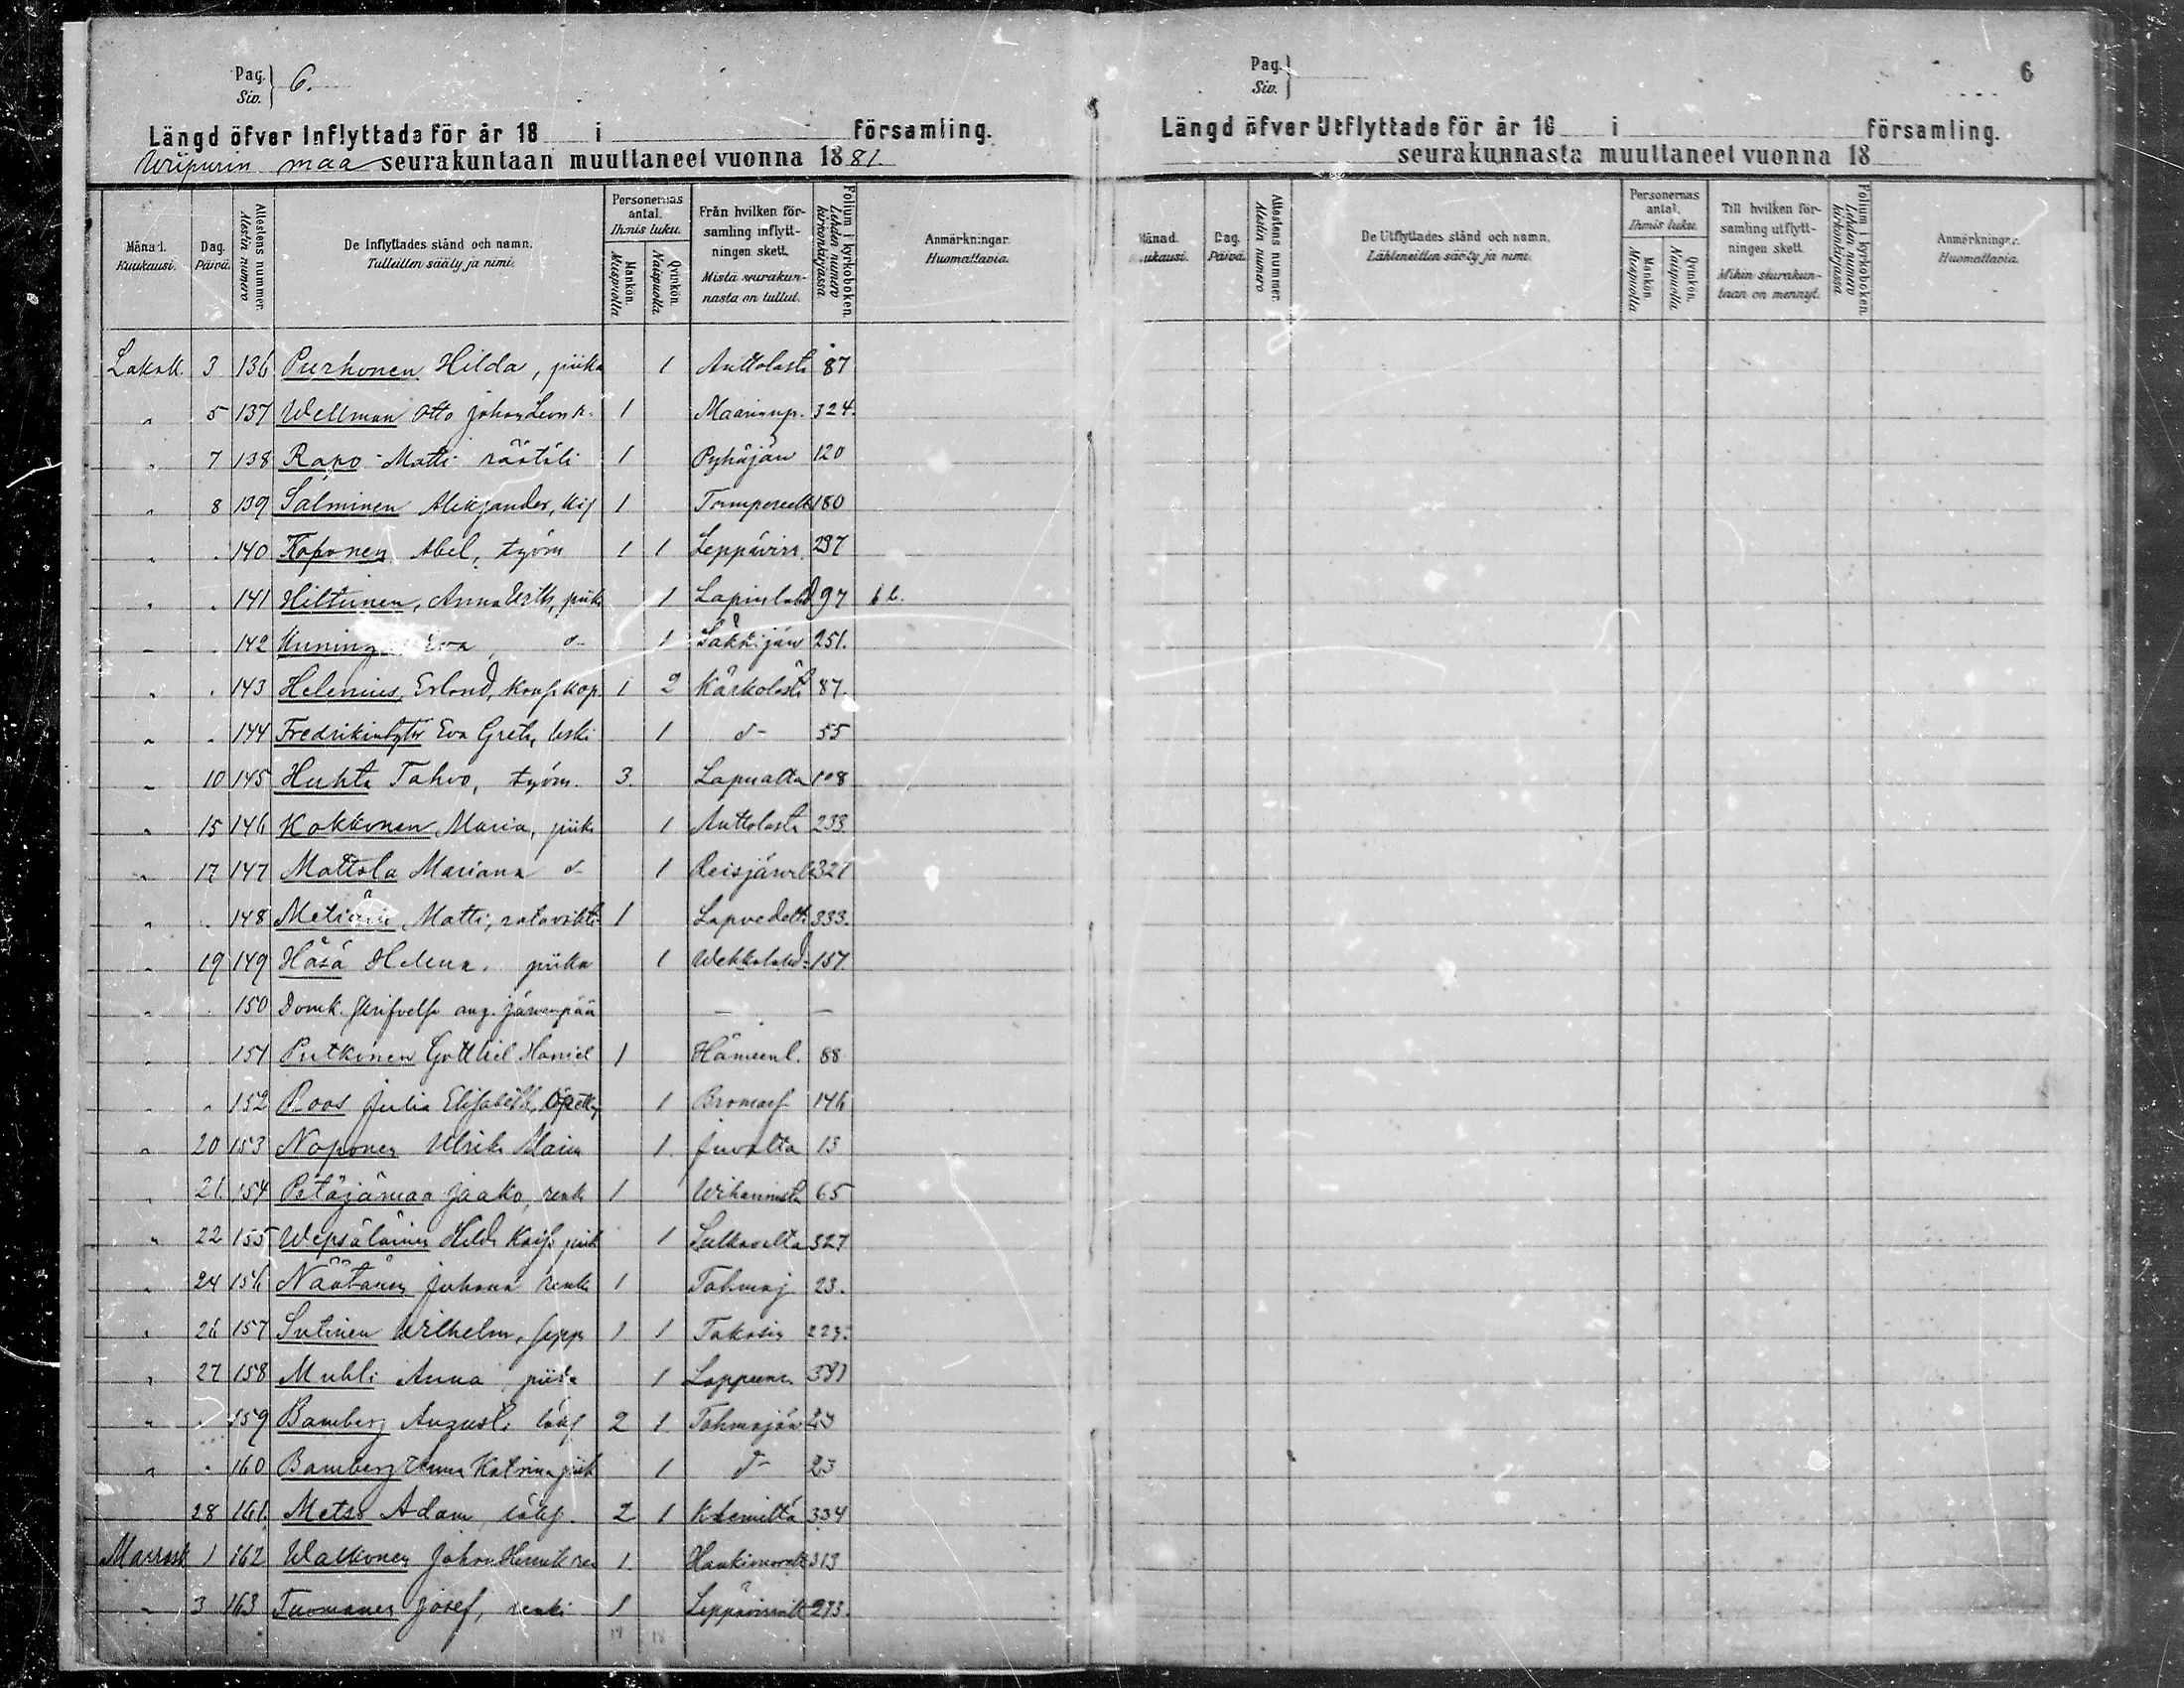 Pag. Siv. 6.
Längd öfver Inflyttade för år 18 i församling.
Wiipurin maa seurakuntaan muuttaneet vuonna 1881
Månad. Kuukausi. Dag. Päivä. Attestens nummer. Atestin numero De Inflyttades stånd och namn. Tulleitten sääty ja nimi. Personernas antal. Ihmis luku. Mankön. Miespuolia Qvinkön. Naispuolia Från hvilken församling inflyttningen skett. Mistä seurakunnasta on tullut. Folium i kyrkoboken. Lehden numero kirkonkirjassa Anmärkningar. Huomattavia.
Lokak. 3 136 Purhonen Hilda, piika 1 Anttolasta 87
" 5 137 Wellman Otto Johan 1 Maarianp. 324.
" 7 138 Rapo Matti räätäli 1 Pyhäjärv 120
" 8 139 Salminen Aleksander, 1 180
" " 140 Koponen Abel, työm 1 1 Leppävirr. 297
" " 141 Hiltunen, Anna piika 1 Lapinlahd 97
" " 142 1 Säkkijärv 251.
" " 143 Helenius, Erland, 1 2 Kärkolasta 87.
" " 144 Eva Greta, leski 1 d- 55
" 10 145 Huhta Tahvo, työm. 3. Lapualta 108
" 15 146 Kokkonen, Maria, piika 1 Anttolasta 233
" 17 147 Mattola Mariana d- 1 Reisjärvelt 327
" " 148 Matti, ratavahti 1 Lapvedelt 333.
" 19 149 Häsä Helena. piika 1 Wehkalahd. 157
" " 150 Domk. järvenpää — —
" " 151 Putkonen Gottlieb Daniel 1 Hämeenl. 88
" " 152 Roos Julia Elisabeth, 1 Bromarf 146
" 20 153 Noponen Ulrika Maria 1. Juvalta 13
" 21. 154 Petäjämaa Jaako, renk 1 Wihannista 65
" 22 155 Wepsäläinen Hilda Kaisa piik 1 Sulkavalta 327
" 24 156 Näätänen Juhana renk 1 Tohmaj 23.
" 26 157 Sutinen Wilhelm, sepp 1 1
" 27 158 Muhli Anna piika 1 Lappeenr.
" " 159 Bamberg August. 2 1. Tohmajärv 23
" " 160 Bamberg Anna Katrina piik 1 d- 23
28 161. Metso Adam 2 1 334
Marrask 1 162 Walkonen Johan Henrik ren 1. 313
" 3 163 Tuomanen Josef, renki 1 Leppävirralt 273.
Pag. Siv. 6
Längd öfver Utflyttade för år 18 i församling.
seurakunnasta muuttaneet vuonna 18
Månad. Kuukausi. Dag. Päivä. Attestens nummer. Atestin numero De Utflyttades stånd och namn. Lähteneitten sääty ja nimi. Personernas antal. Ihmis luku. Mankön. Miespuolia Qvinkön. Naispuolia Till hvilken församling utflyttningen skett. Mihin seurakuntaan on mennyt. Folium i kyrkoboken. Lehden numero kirkonkirjassa Anmärkningar. Huomattavia.